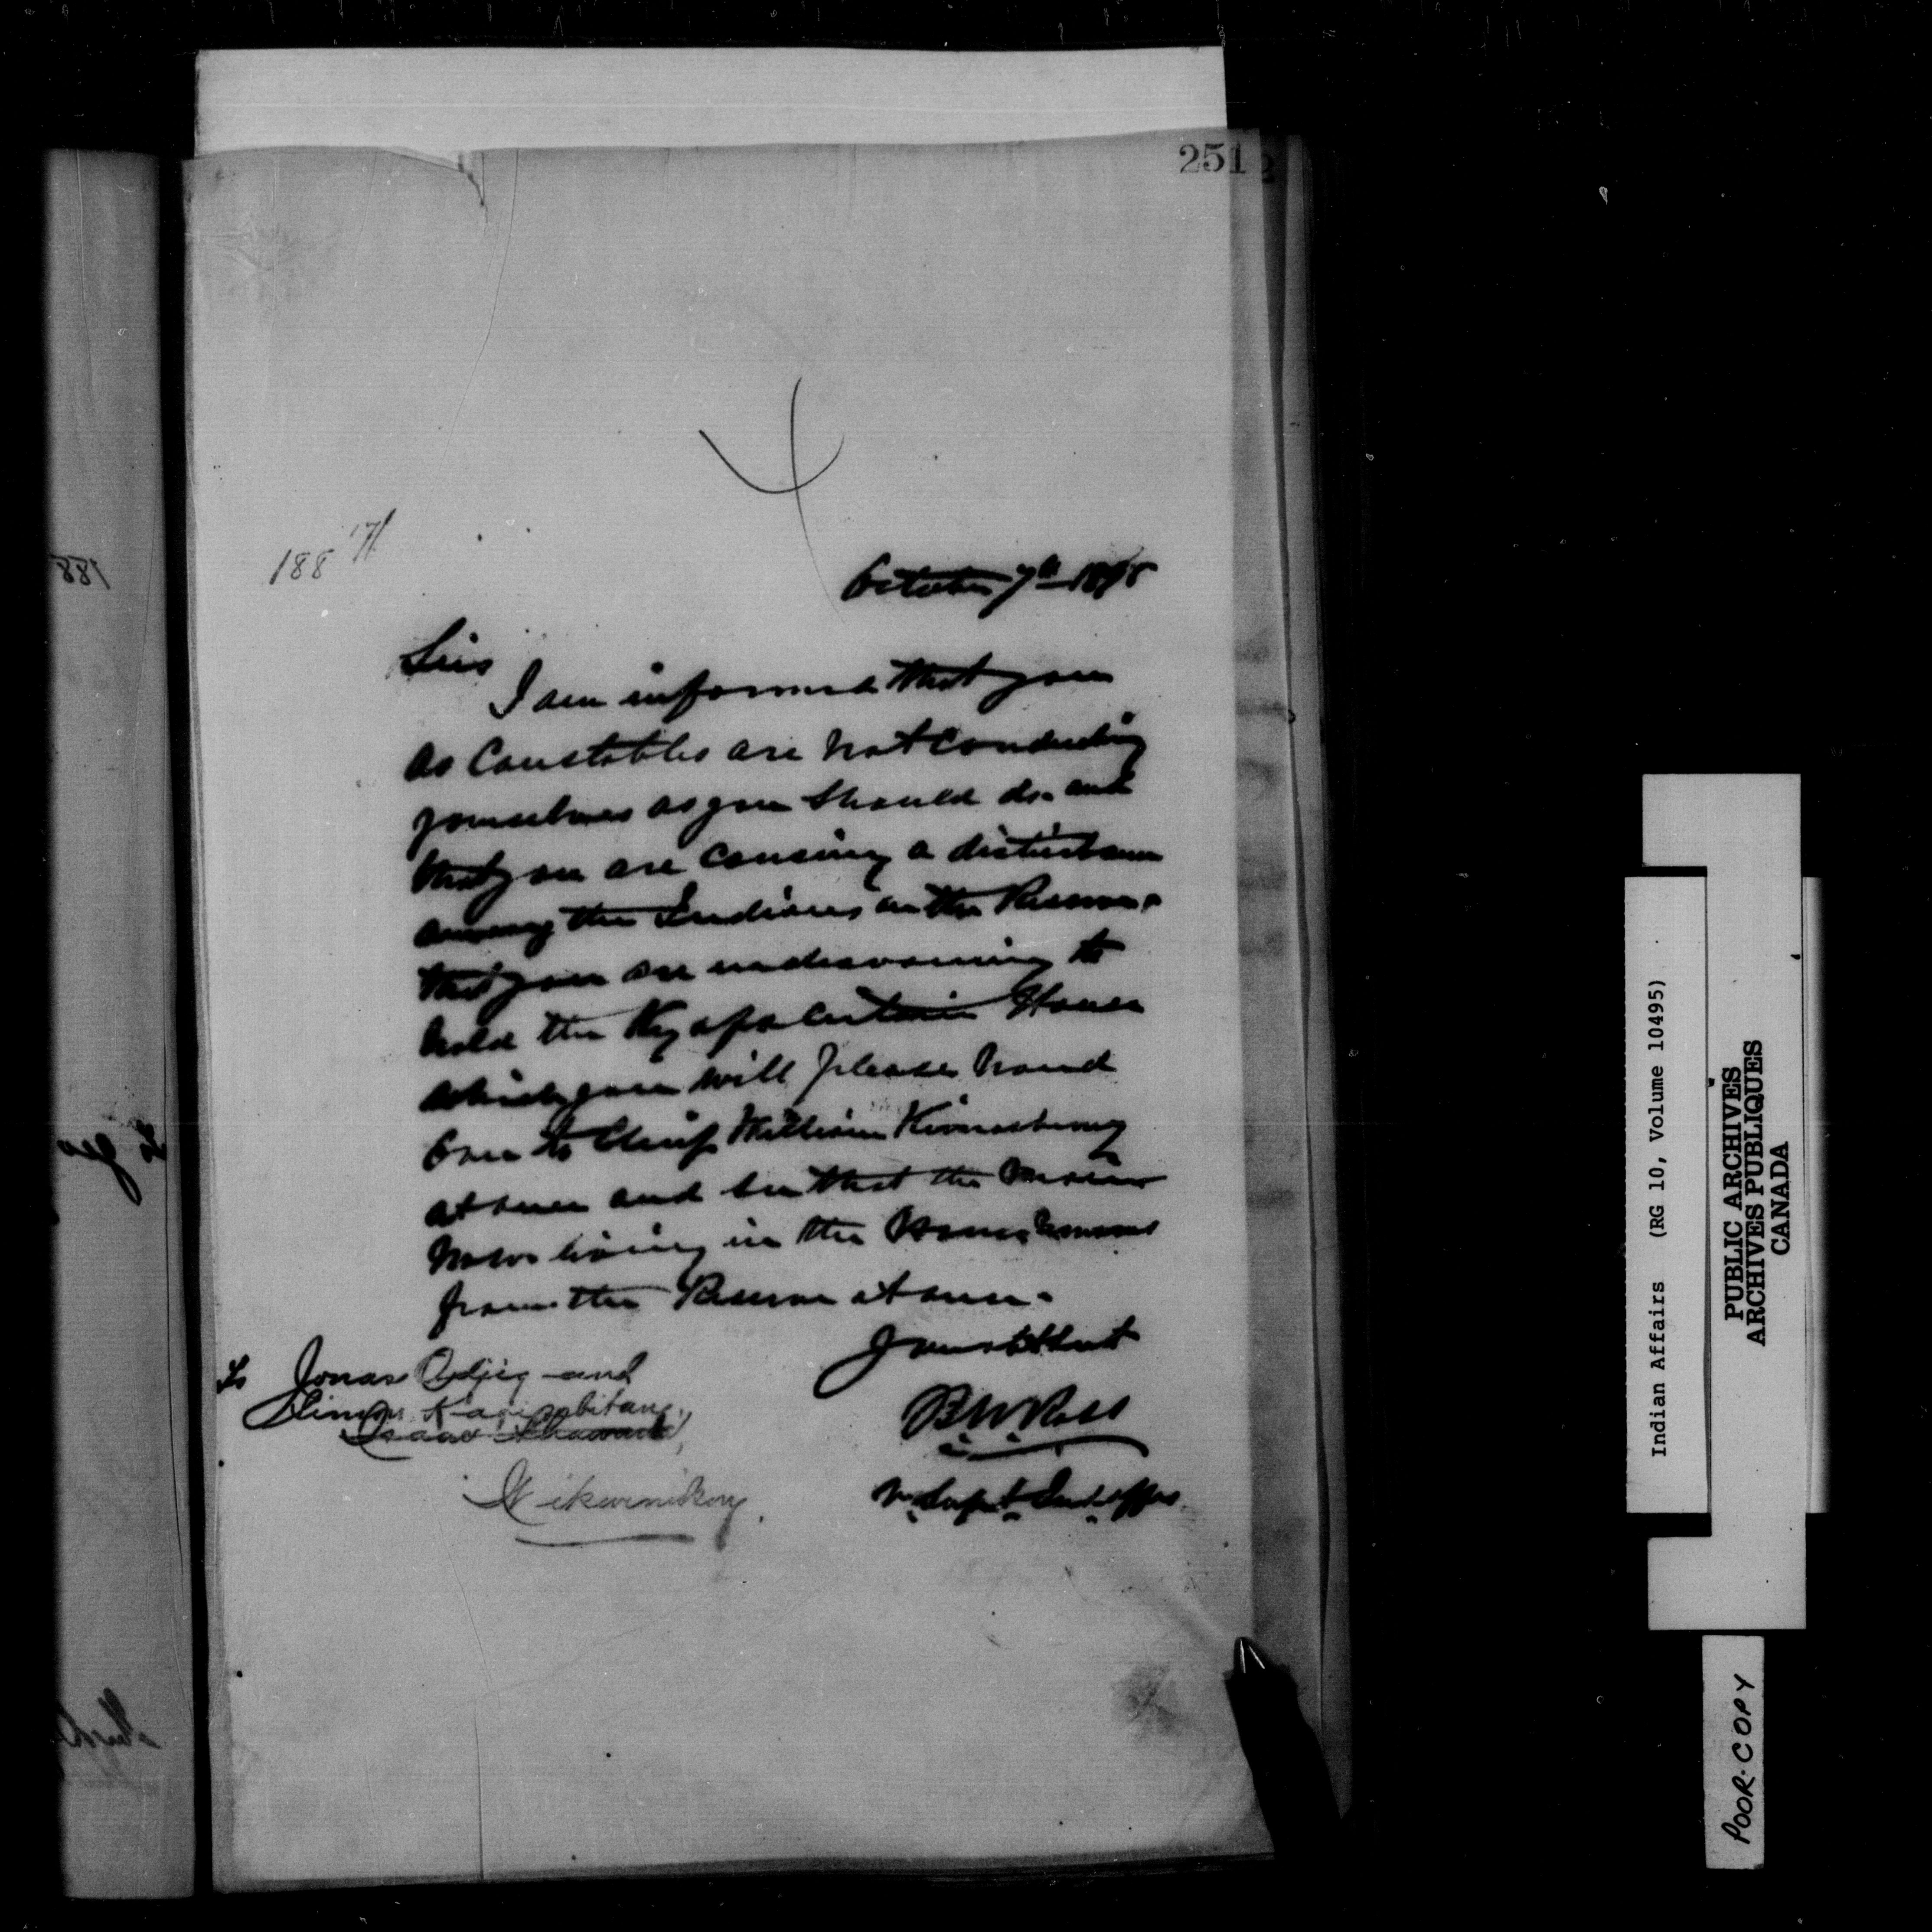 251
188 171
October 7th 1898
Sirs
I am informed that you
as Constables are not conducting
yourselves as you should do. and
that you are causing a disturbance
among the Indians on the Reserve.
that you are endeavouring to
hold the Key of a certain House
which you will please hand
over to Chief William Kinoshameg
at once and see that the
now living in the House
from the Reserve at once.
Your obt Servt
B W Ross
Supt Ind. Affrs.
To Jonas Odjig and
Simon
Isaac
Wikwemikong.
Indian Affairs (RG 10, Volume 10495)
PUBLIC ARCHIVES
ARCHIVES PUBLIQUES
CANADA
POOR COPY